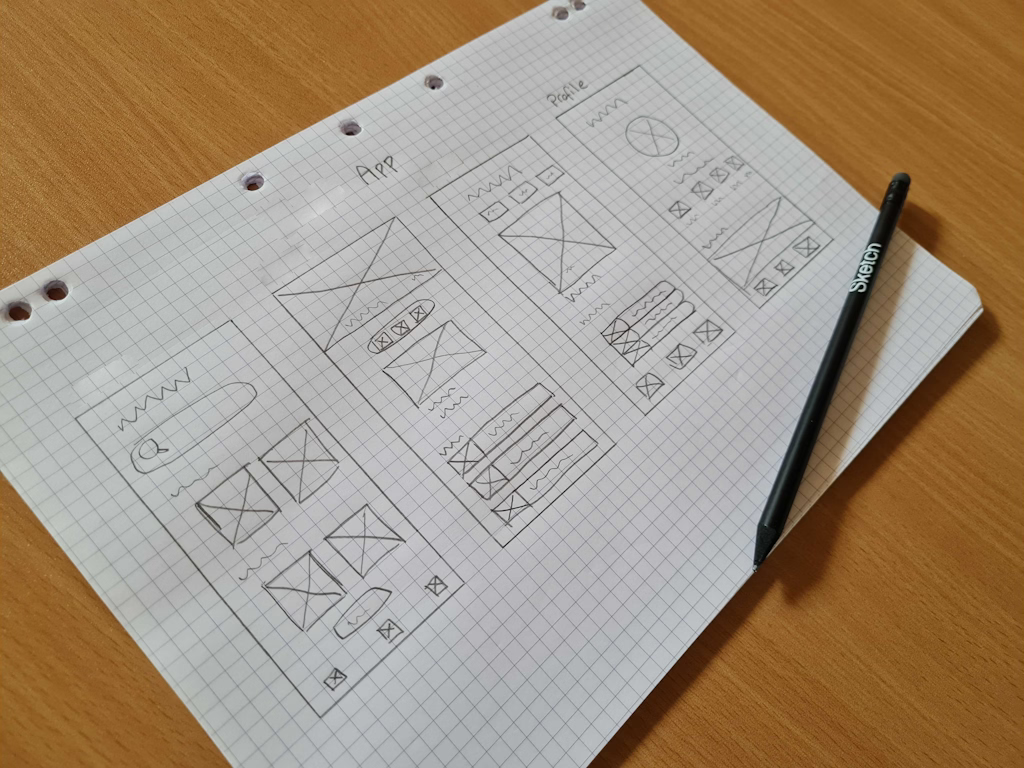 App
Profile
Sketch